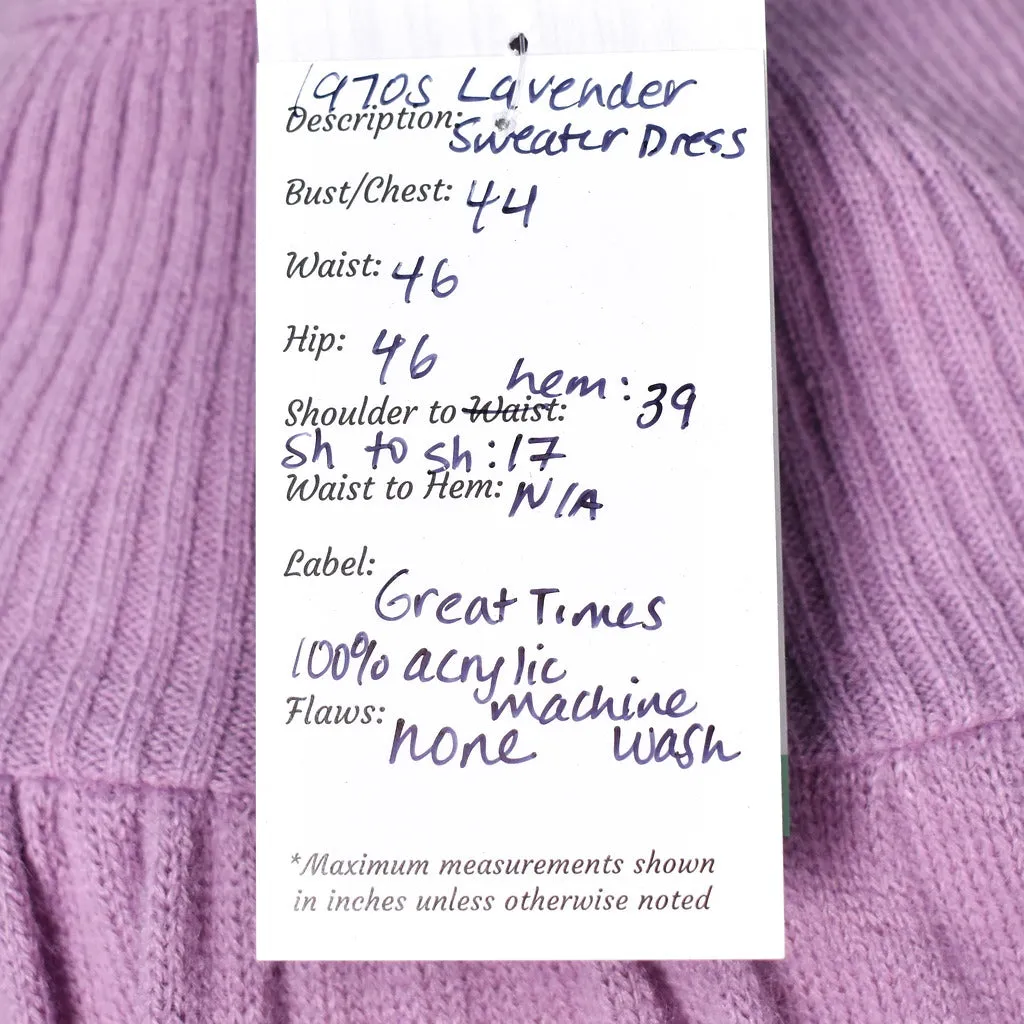 1970s Lavender
Description: Sweater Dress
Bust/Chest: 44
Waist: 46
Hip: 46
hem: 39
Shoulder to Waist:
Sh to sh: 17
Waist to Hem: N/A
Label:
Great Times
100% acrylic
machine
Flaws: none wash
*Maximum measurements shown
in inches unless otherwise noted